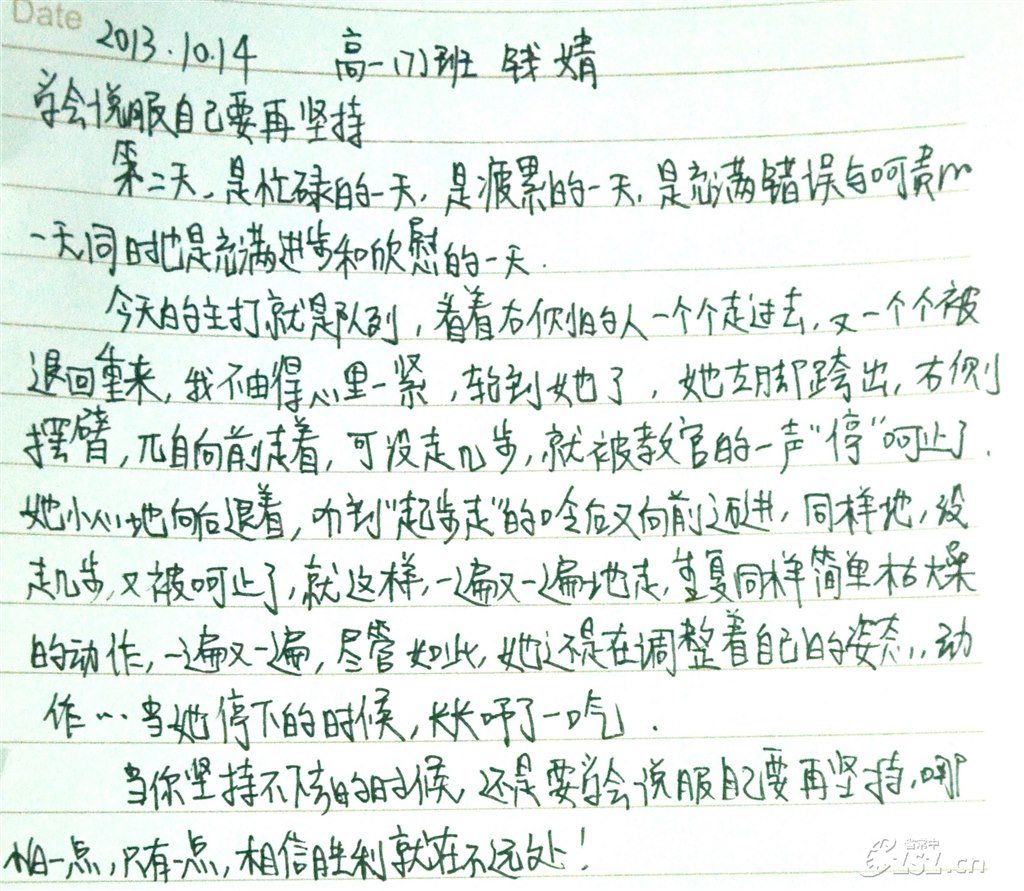 Date
2013.10.14 高一(7)班 钱婧
学会说服自己要再坚持
第二天,是忙碌的一天,是疲累的一天,是充满错误与呵责的
一天同时也是充满进步和欣慰的一天.
今天的主打就是队列,看着右侧的人一个个走过去,又一个个被
退回重来,我不由得心里一紧,轮到她了,她左脚跨出,右侧
摆臂,兀自向前走着,可没走几步,就被教官的一声“停”呵止了.
她小心地向后退着,听到“起步走”的口令后又向前迈进,同样地,没
走几步,又被呵止了,就这样,一遍又一遍地走,重复同样简单枯燥
的动作,一遍又一遍,尽管如此,她还是在调整着自己的姿态,动
作…当她停下的时候,长长吁了一口气.
当你坚持不下去的时候,还是要学会说服自己要再坚持,哪
怕一点,只有一点,相信胜利就在不远处!
省常中
LSL.cn